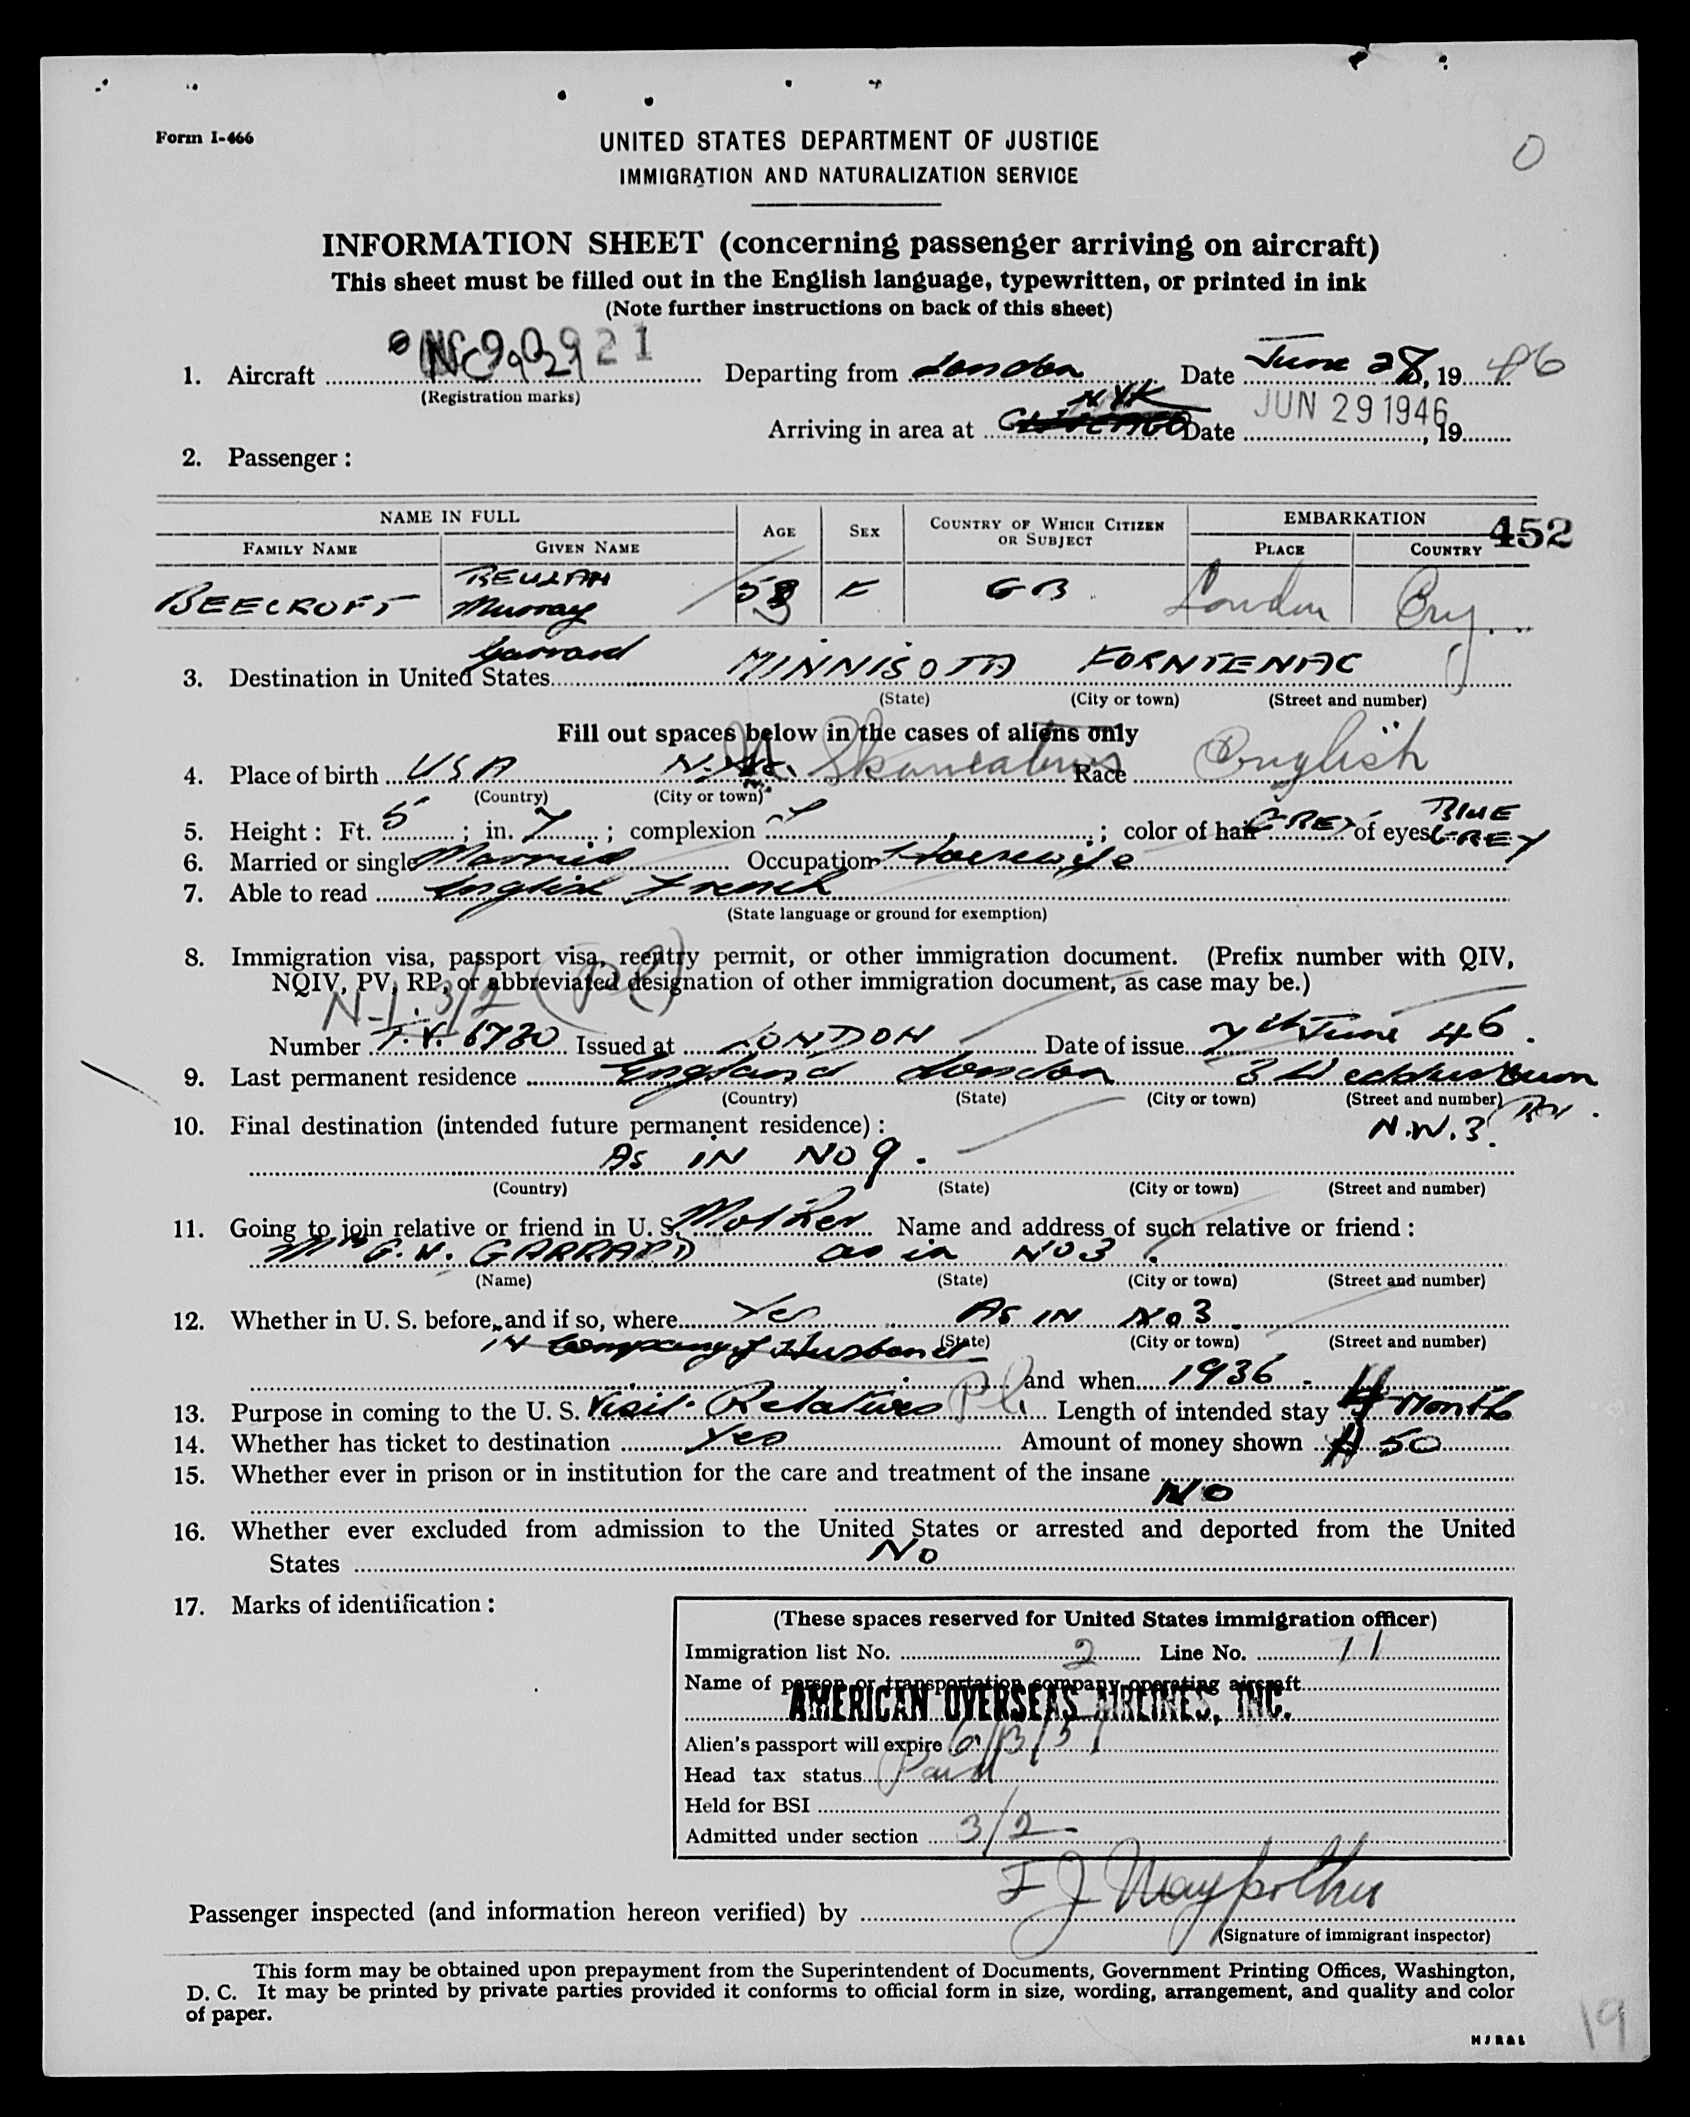 Form I-466
UNITED STATES DEPARTMENT OF JUSTICE
IMMIGRATION AND NATURALIZATION SERVICE
O
INFORMATION SHEET (concerning passenger arriving on aircraft)
This sheet must be filled out in the English language, typewritten, or printed in ink
(Note further instructions on back of this sheet)
1. Aircraft NC90921 Departing from London Date June 28, 19 46
(Registration marks)
Arriving in area at NYK Date JUN 29 1946, 19
2. Passenger:
NAME IN FULL AGE SEX COUNTRY OF WHICH CITIZEN OR SUBJECT EMBARKATION 452
FAMILY NAME GIVEN NAME PLACE COUNTRY
BEECROFT BEULAH Murray Garrard 58 F GB London Eng.
3. Destination in United States MINNISOTA FORNTENAC
(State) (City or town) (Street and number)
Fill out spaces below in the cases of aliens only
4. Place of birth USA N.Y. Skaneateles Race English
(Country) (City or town)
5. Height: Ft. 5; in. 7; complexion; color of hair GREY of eyes BLUE GREY
6. Married or single Married Occupation Housewife
7. Able to read English French
(State language or ground for exemption)
8. Immigration visa, passport visa, reentry permit, or other immigration document. (Prefix number with QIV,
NQIV, PV, RP, or abbreviated designation of other immigration document, as case may be.)
N-1. 3/2
Number T.V. 6730 Issued at LONDON Date of issue 7th June 46.
9. Last permanent residence England London 3 N.W.3.
(Country) (State) (City or town) (Street and number)
10. Final destination (intended future permanent residence):
As IN NO 9.
(Country) (State) (City or town) (Street and number)
11. Going to join relative or friend in U. S. Mother Name and address of such relative or friend:
Mrs G. W. GARRARD as in NO 3.
(Name) (State) (City or town) (Street and number)
12. Whether in U. S. before, and if so, where Yes As IN No 3.
(State) (City or town) (Street and number)
in Company of Husband
and when 1936
13. Purpose in coming to the U. S. Visit. Relatives Length of intended stay 4 Month
14. Whether has ticket to destination Yes Amount of money shown $ 50
15. Whether ever in prison or in institution for the care and treatment of the insane
NO
16. Whether ever excluded from admission to the United States or arrested and deported from the United
States No
17. Marks of identification:
(These spaces reserved for United States immigration officer)
Immigration list No. 2 Line No. 11
Name of person or transportation company operating aircraft
AMERICAN OVERSEAS AIRLINES, INC.
Alien's passport will expire 6/13/51
Head tax status Paid
Held for BSI
Admitted under section 3/2
Passenger inspected (and information hereon verified) by
(Signature of immigrant inspector)
This form may be obtained upon prepayment from the Superintendent of Documents, Government Printing Offices, Washington,
D. C. It may be printed by private parties provided it conforms to official form in size, wording, arrangement, and quality and color
of paper.
19